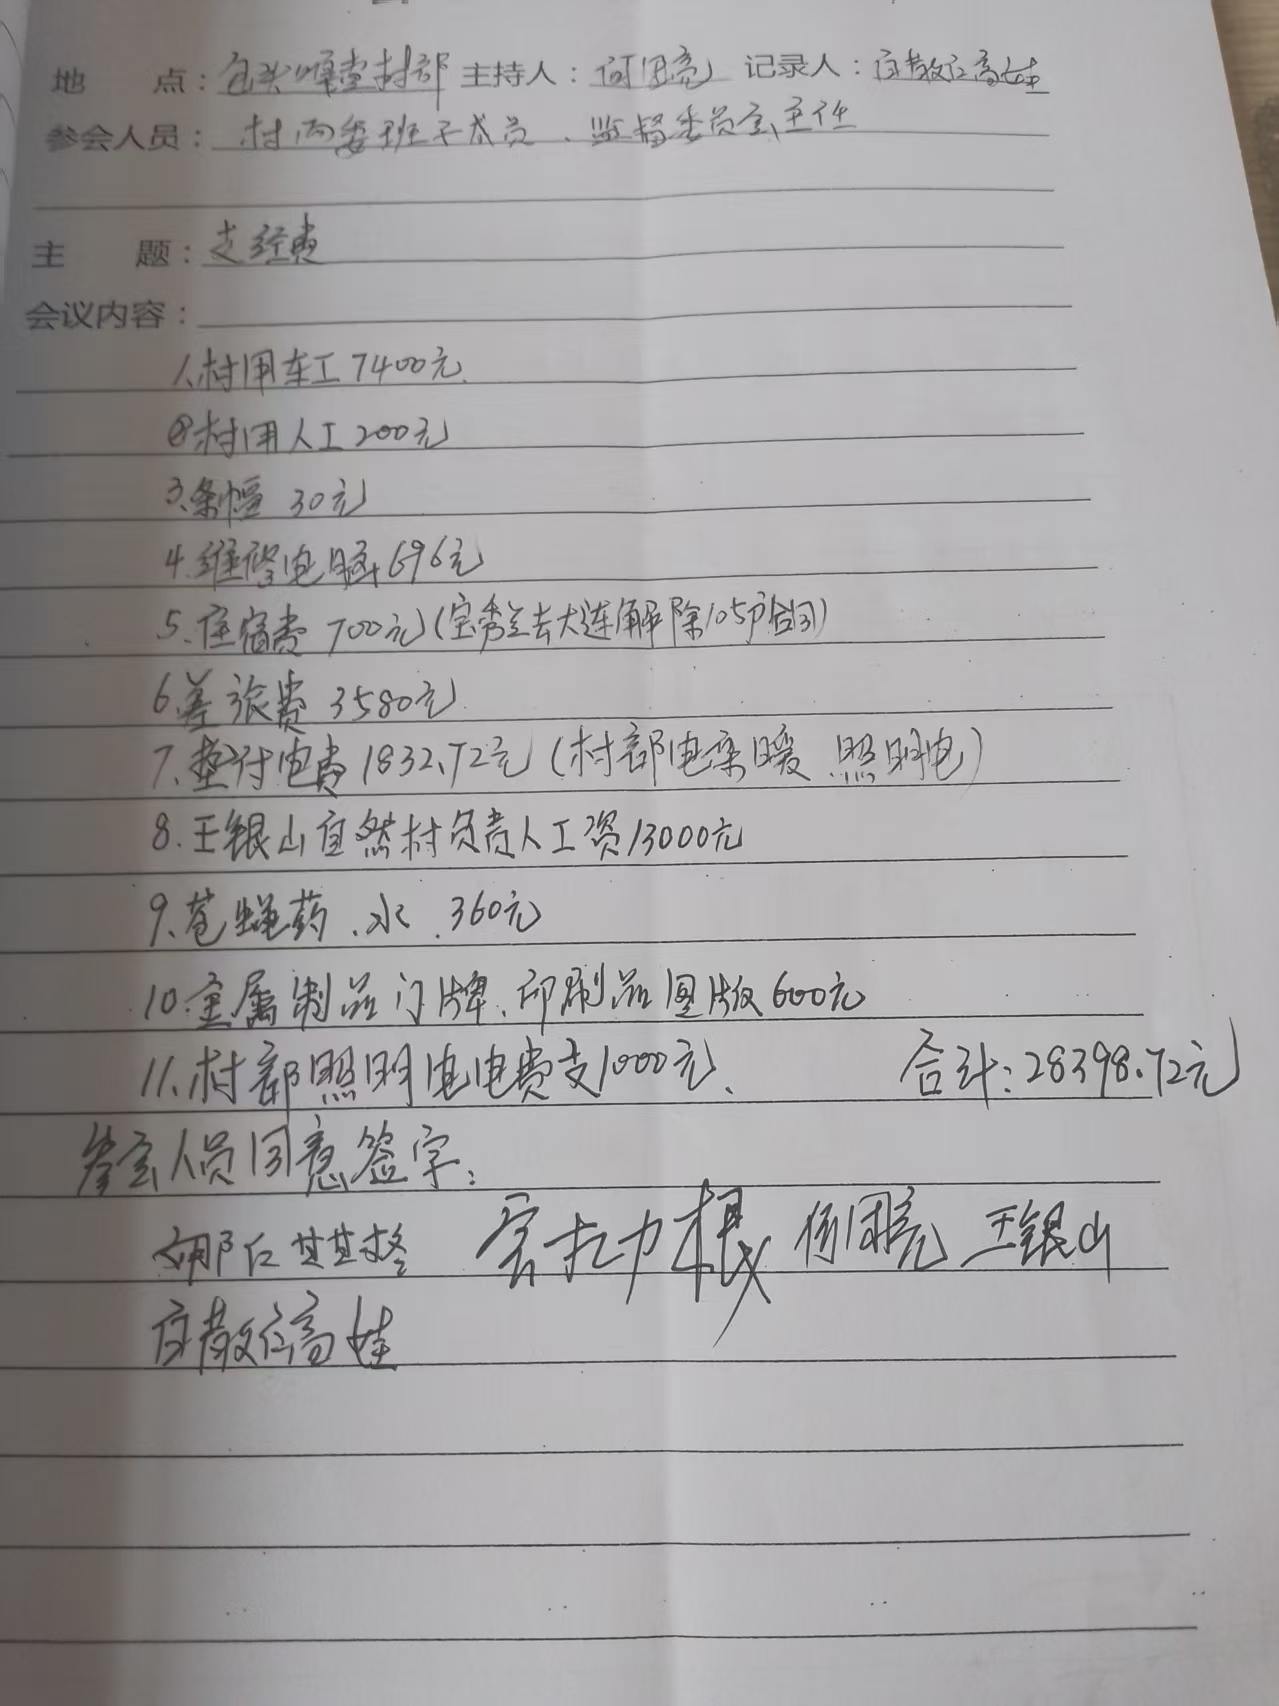 地 点：包头嘎查村部 主持人：何国亮 记录人：高娃
参会人员：村两委班子成员、监督委员会主任
主 题：支经费
会议内容：
1、村用车工7400元.
②村用人工200元
3、条幅 30元
4.维修电脑696元
5、住宿费 700元(宝秀兰去大连解除105户合同)
6.差旅费 3580元
7、垫付电费1832.72元(村部电采暖 照明电)
8.王银山自然村负责人工资13000元
9、苍蝇药、水、360元
10.金属制品门牌、印刷品图版600元
11、村部照明电电费支1000元、 合计:28398.72元
参会人员同意签字:
娜仁其其格 宝拉力根 何国亮 王银山
高娃